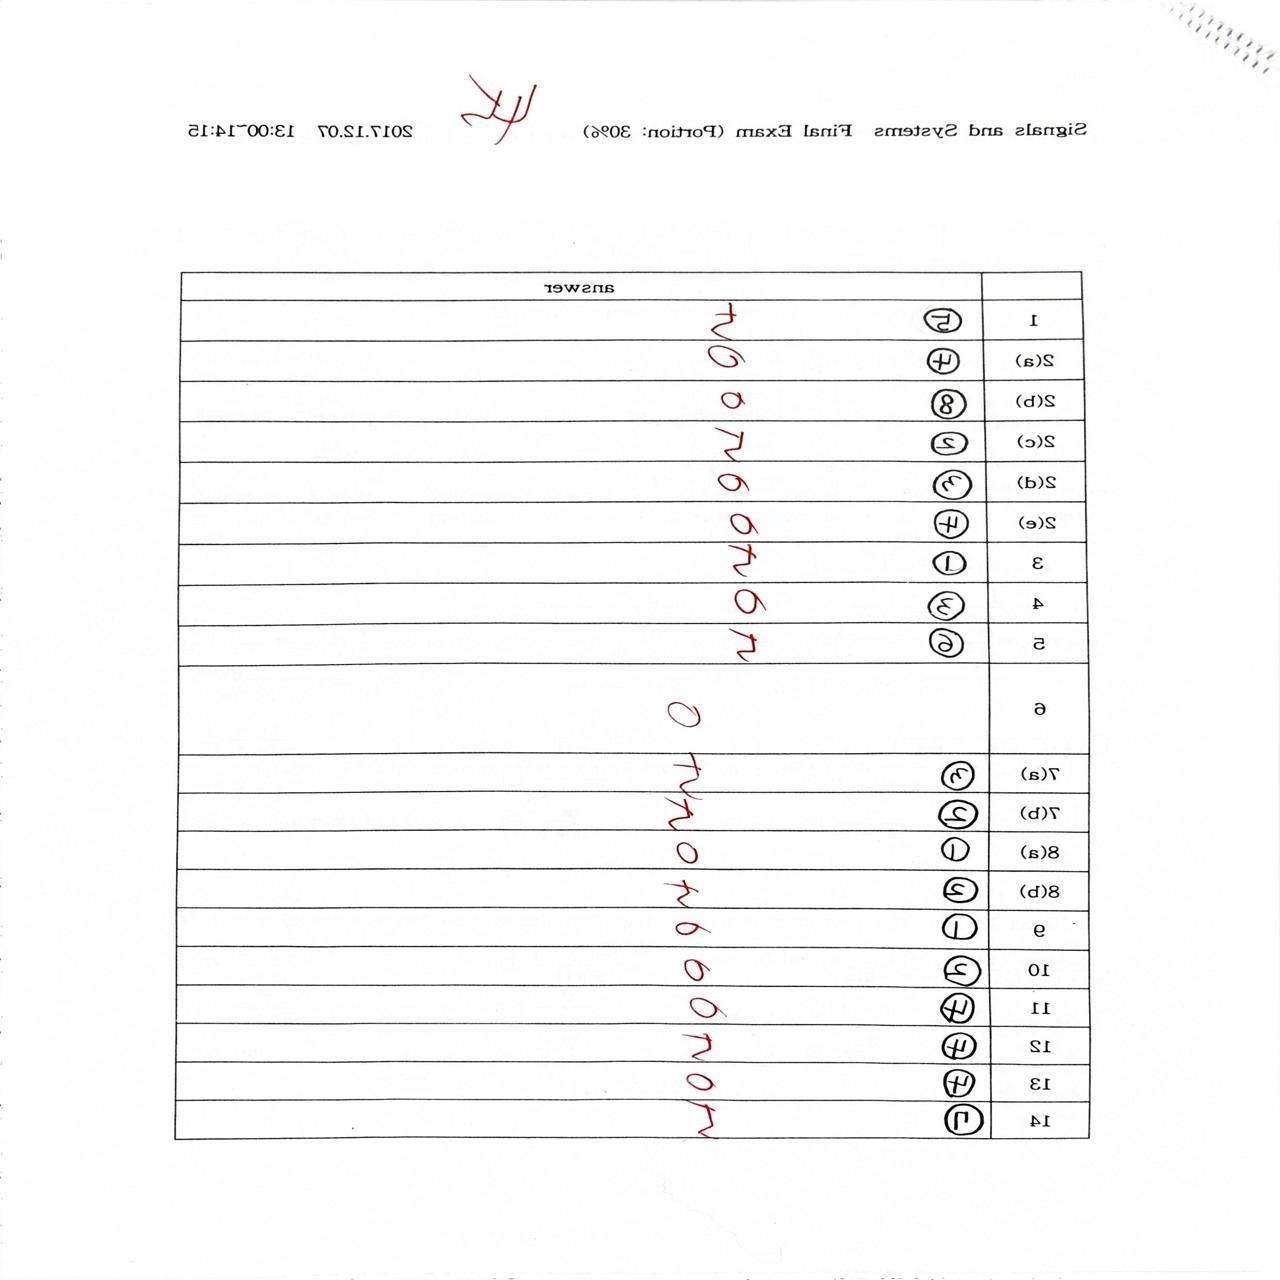 Signals and Systems Final Exam (Portion: 30%) 45 2017.12.07 13:00~14:15
answer
1 ⑤ 5
2(a) ④ 0
2(b) ⑧ 0
2(c) ② 5
2(d) ③ 0
2(e) ④ 0
3 ① 5
4 ③ 0
5 ⑥ 5
6 0
7(a) ③ 5
7(b) 5
8(a) ① 0
8(b) 5
9 ① 0
10 0
11 ④ 0
12 ④ 5
13 ④ 0
14 5